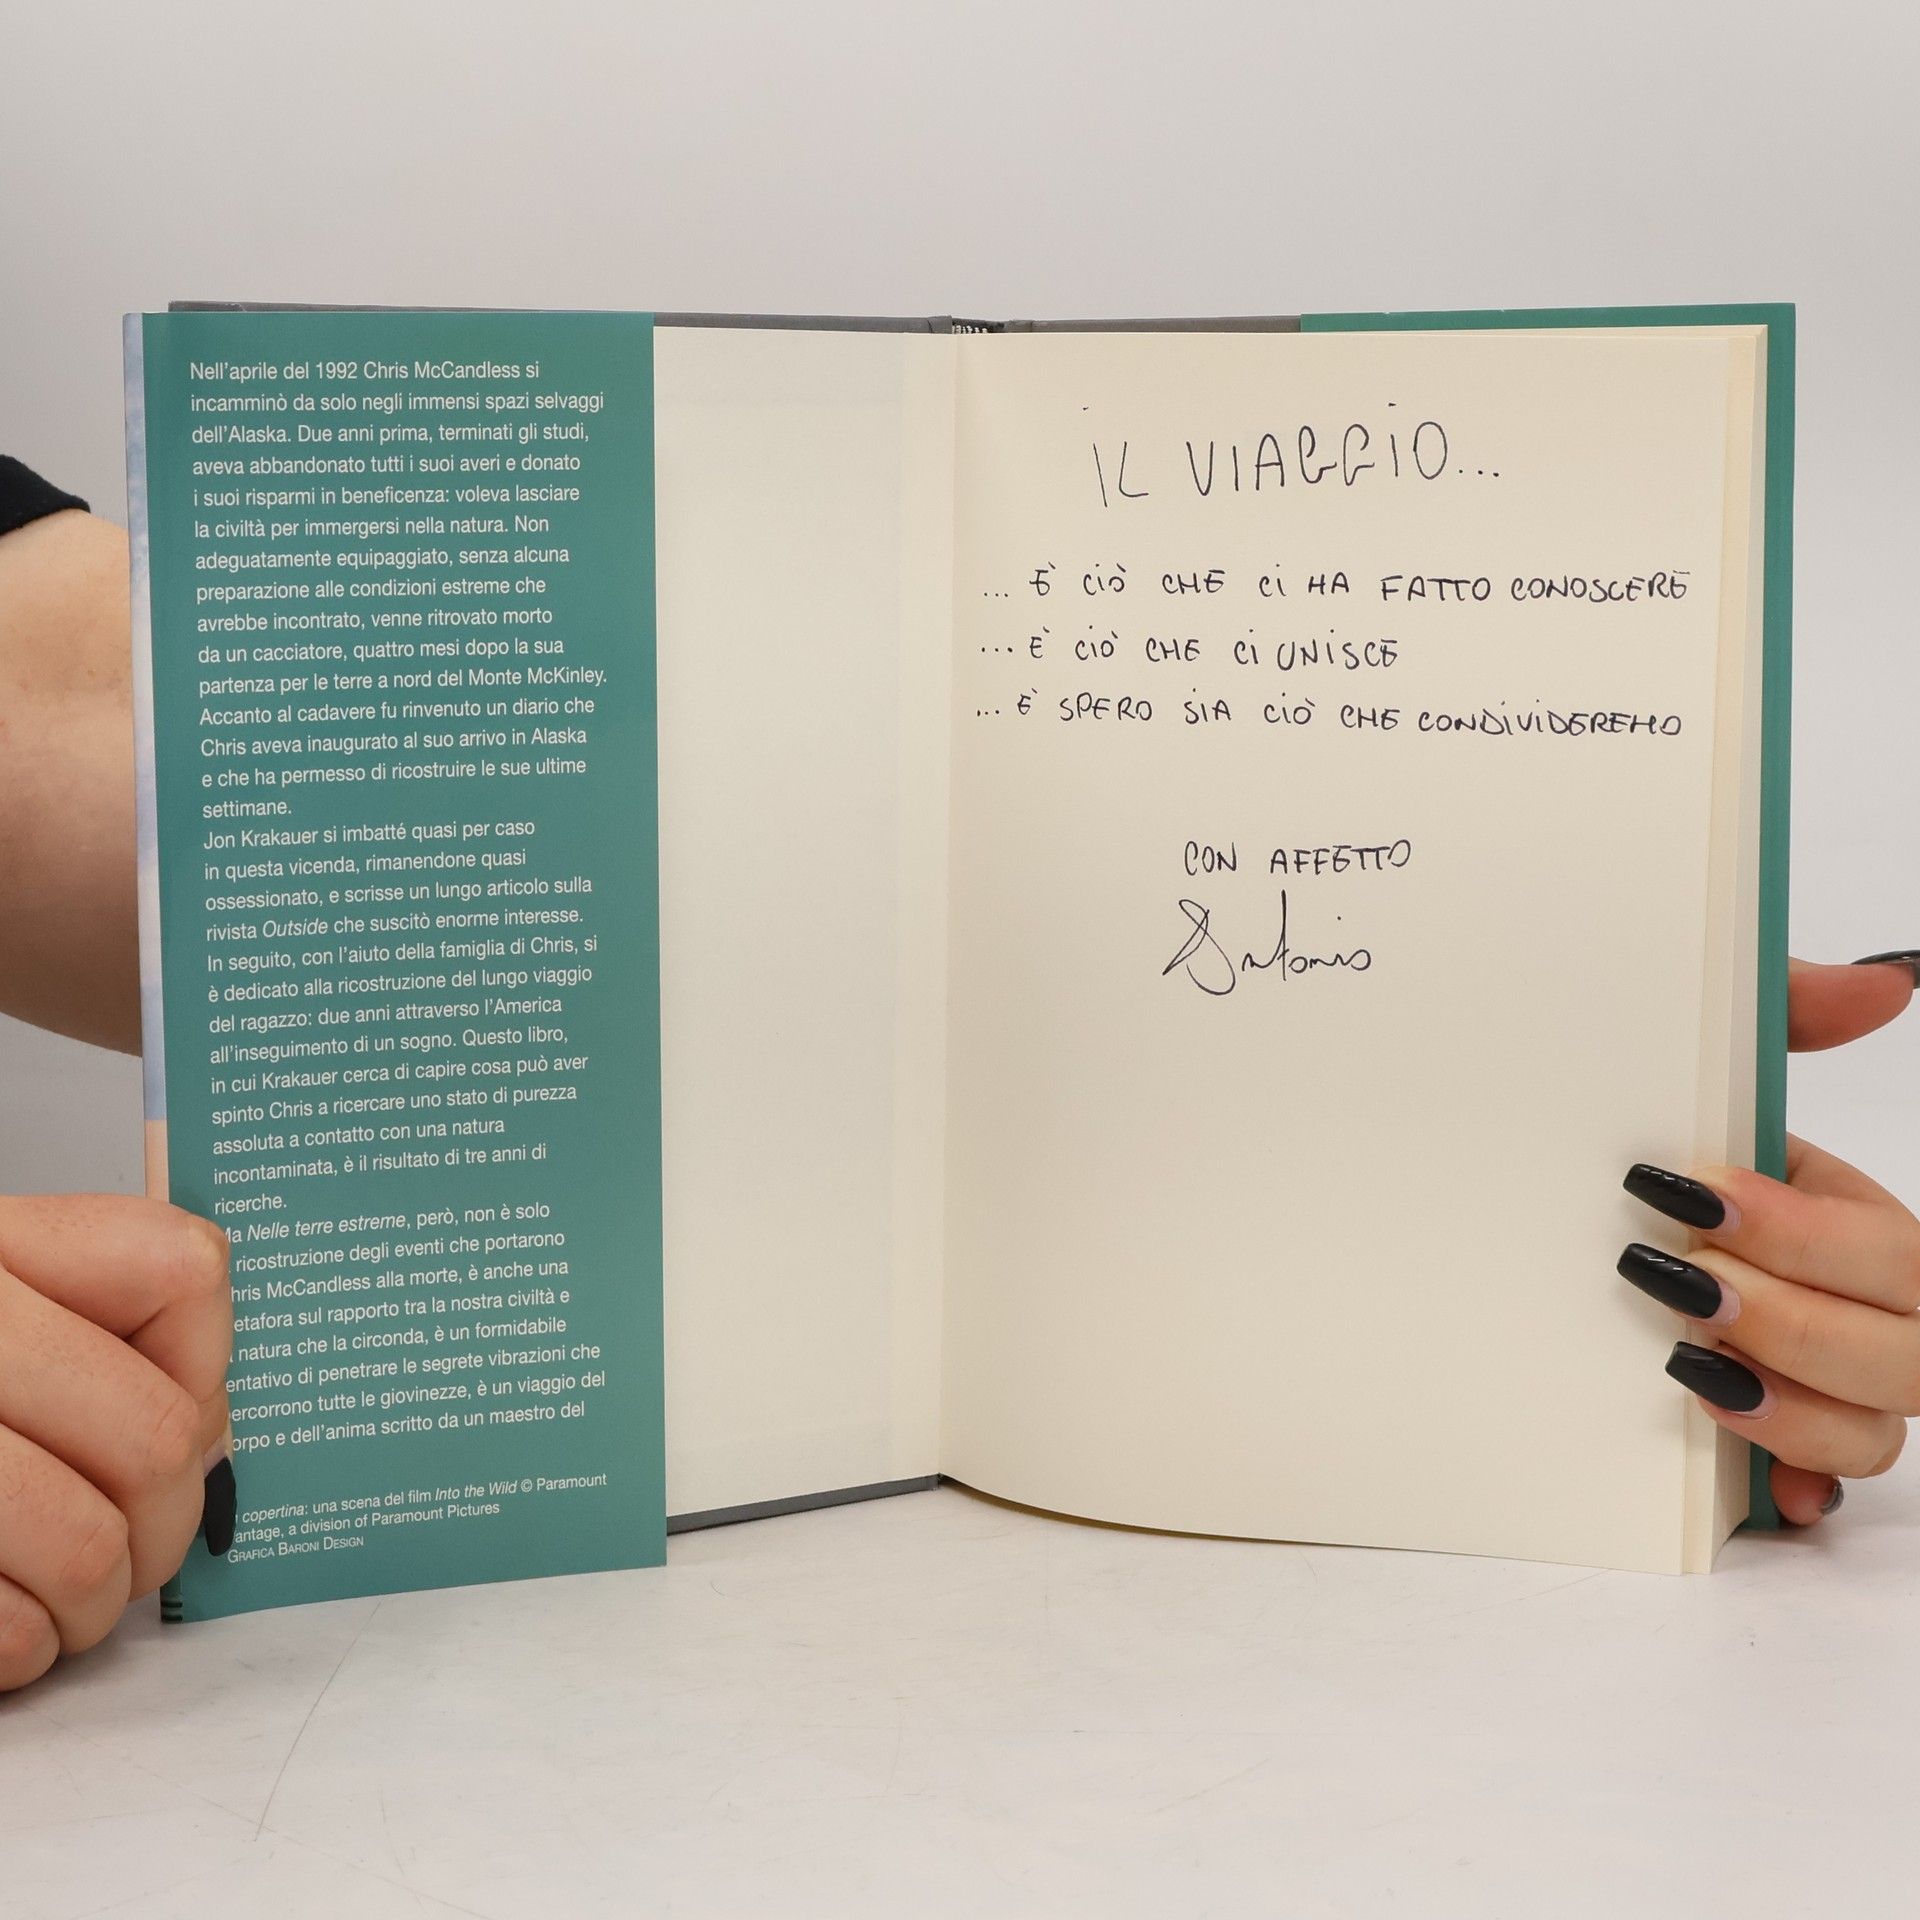 Nell'aprile del 1992 Chris McCandless si
incamminò da solo negli immensi spazi selvaggi
dell'Alaska. Due anni prima, terminati gli studi,
aveva abbandonato tutti i suoi averi e donato
i suoi risparmi in beneficenza: voleva lasciare
la civiltà per immergersi nella natura. Non
adeguatamente equipaggiato, senza alcuna
preparazione alle condizioni estreme che
avrebbe incontrato, venne ritrovato morto
da un cacciatore, quattro mesi dopo la sua
partenza per le terre a nord del Monte McKinley.
Accanto al cadavere fu rinvenuto un diario che
Chris aveva inaugurato al suo arrivo in Alaska
e che ha permesso di ricostruire le sue ultime
settimane.
Jon Krakauer si imbatté quasi per caso
in questa vicenda, rimanendone quasi
ossessionato, e scrisse un lungo articolo sulla
rivista Outside che suscitò enorme interesse.
In seguito, con l'aiuto della famiglia di Chris, si
è dedicato alla ricostruzione del lungo viaggio
del ragazzo: due anni attraverso l'America
all'inseguimento di un sogno. Questo libro,
in cui Krakauer cerca di capire cosa può aver
spinto Chris a ricercare uno stato di purezza
assoluta a contatto con una natura
incontaminata, è il risultato di tre anni di
ricerche.
Ma Nelle terre estreme, però, non è solo
ricostruzione degli eventi che portarono
hris McCandless alla morte, è anche una
etafora sul rapporto tra la nostra civiltà e
natura che la circonda, è un formidabile
entativo di penetrare le segrete vibrazioni che
ercorrono tutte le giovinezze, è un viaggio del
orpo e dell'anima scritto da un maestro del
copertina: una scena del film Into the Wild © Paramount
antage, a division of Paramount Pictures
GRAFICA BARONI DESIGN
IL VIAGGIO...
... È CIÒ CHE CI HA FATTO CONOSCERE
... È CIÒ CHE CI UNISCE
... È SPERO SIA CIÒ CHE CONDIVIDEREMO
CON AFFETTO
Antonio